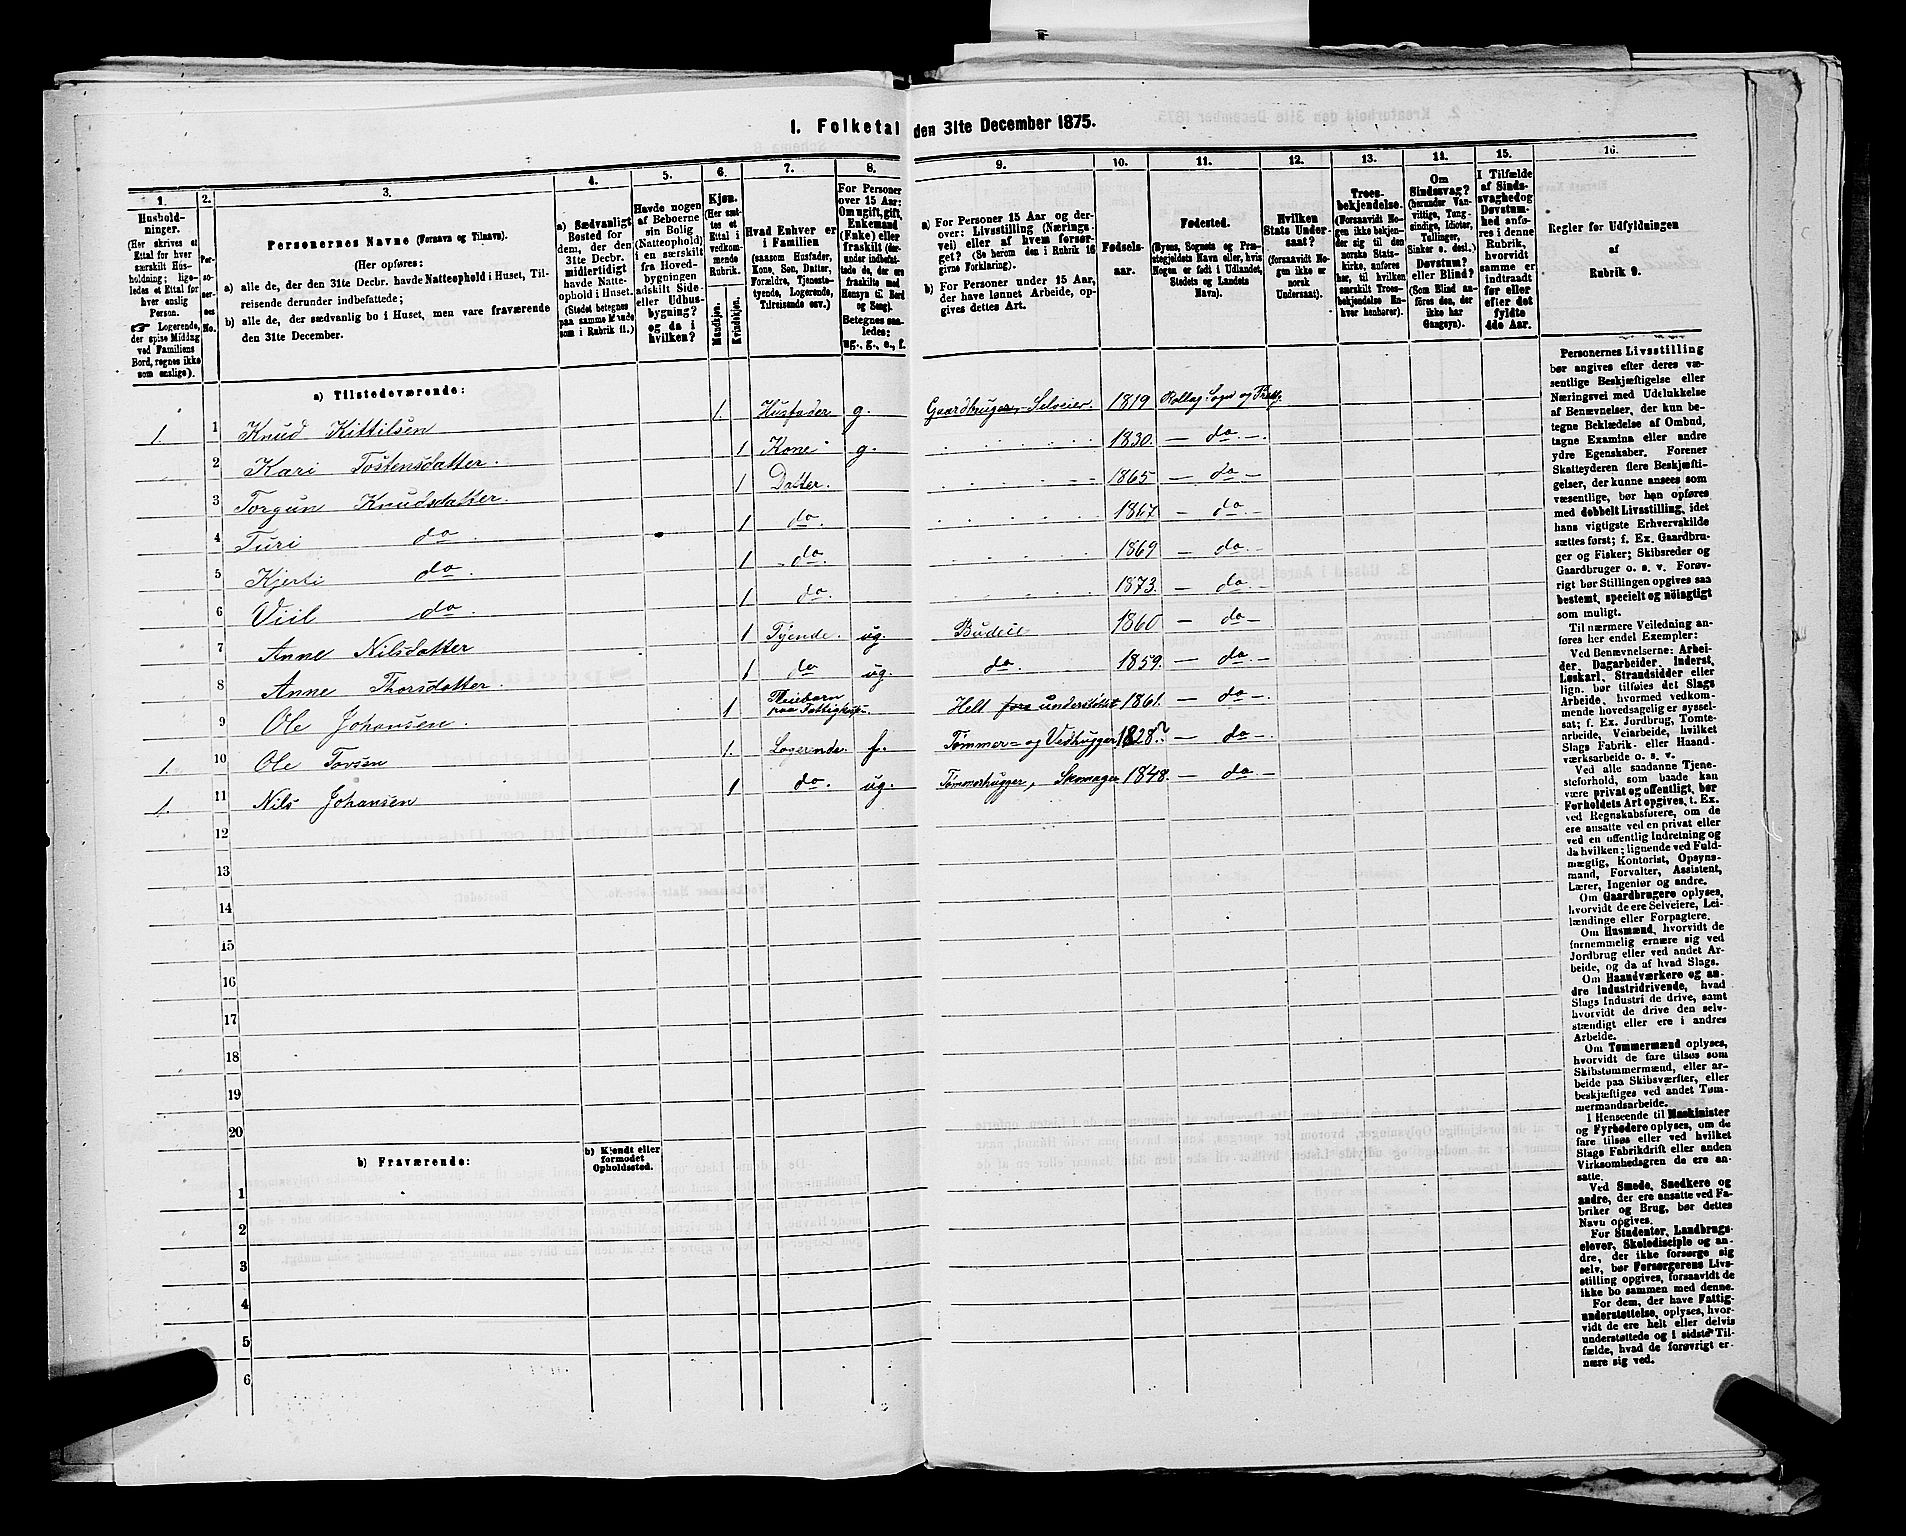 1. Folketal den 31te December 1875.
1. 2. 3. 4. 5. 6. 7. 8. 9. 10. 11. 12. 13. 14. 15. 16.
Husholdninger.
(Her skrives et
Ettal for hver
særskilt Husholdning; ligeledes et Ettal for
hver enslig
Person.
☞ Logerende,
der spise Middag
ved Familiens
Bord, regnes ikke
som enslige).
Personernes No.
Personernes Navne (Fornavn og Tilnavn).
(Her opføres:
a) alle de, der den 31te Decbr. havde Natteophold i Huset, Tilreisende derunder indbefattede;
b) alle de, der sædvanlig bo i Huset, men vare fraværende
den 31te December.
a) Sædvanligt
Bosted for
dem, der den
31te Decbr.
midlertidigt
havde Natteophold i Huset.
(Stedet betegnes
paa samme Maade
som i Rubrik 11.)
Havde nogen
af Beboerne
sin Bolig
(Natteophold)
i en særskilt
fra Hovedbygningen
adskilt Side-
eller Udhusbygning?
og da i
hvilken?
Kjøn.
(Her sættes et
Ettal i
vedkommende
Rubrik.
Mandkjøn.
Kvindekjøn.
Hvad Enhver er
i Familien
(saasom Husfader,
Kone, Søn, Datter,
Forældre, Tjenestetyende, Logerende,
Tilreisende osv.)
For Personer
over 15 Aar:
Om ugift, gift,
Enkemand
(Enke) eller
fraskilt (derindbefattede de, der ere
fraskilte med
Hensyn til Bord
og Seng).
Betegnes saaledes:
ug., g., e., f.
a) For Personer 15 Aar og derover: Livsstilling (Næringsvei) eller af hvem forsørget? (Se herom den i Rubrik 16
givne Forklaring).
b) For Personer under 15 Aar,
der have lønnet Arbeide, opgives dettes Art.
Fødselsaar.
Fødested.
(Byens, Sognets og Præstegjeldets Navn eller, hvis
Nogen er født i Udlandet,
Stedets og Landets
Navn).
Hvilken
Stats Undersaat?
(forsaavidt Nogen ikke er
norsk
Undersaat).
Troesbekjendelse.
(Forsaavidt Nogen ikke bekjender sig til den
norske Statskirke, anføres
her, til hvilken
særskilt Troesbekjendelse Han hører).
Om
Sindssvag?
(herunder Vanvittige, Tungsindige, Idioter,
Tullinger,
Sinker o. desl.)
Døvstum?
eller Blind?
(Som Blind anføres den, der
ikke har
Gangsyn).
I Tilfælde
af Sindssvaghed og
Døvstumhed anføres i denne
Rubrik,
hvorvidt
samme er
indtraadt
før eller
efter det
fyldte
4de Aar.
Regler for Udfyldningen
af
Rubrik 9.
a) Tilstedeværende:
1 1 Knud Kittilsen 1. Husfader g. Gaardbruger, Selveier. 1819 Rollag Sogn og Præstg.
2 Kari Tostensdatter. 1 Kone g. 1830. — do. —
3 Torgun Knudsdatter. 1 Datter. 1865 — do —
4 Turi do 1 do. 1867 — do. —
5 Kjersti do. 1 do. 1869 — do. —
6 Viil do. 1 do. 1873. — do. —
7 Anne Nilsdatter 1 Tyende. ug. Budeie 1860 — do —
8 Anne Thorsdatter. 1 do ug. do. 1859. — do. —
9 Ole Johansen. 1 Pleiebarn paa Fattigkass. Helt understøttet 1861. — do —
1. 10 Ole Tovsen 1. Logerende. f. Tømmer- og Vedhugger 1828? — do —
1. 11 Nils Johansen 1 do. ug. Tømmerhugger, Skomager 1848. — do. —
12
13
14
15
16
17
18
19
20
b) Fraværende:
b) Kjendt eller
formodet
Opholdssted.
1
2
3
4
5
6
Personernes Livsstilling
bør angives efter deres væsentlige Beskjæftigelse eller
Næringsvei med Udelukkelse
af Benævnelser, der kun betegne Beklædelse af Ombud,
tagne Examina eller andre
ydre Egenskaber. Forener
Skatteyderen flere Beskjæftigelser, der kunne ansees som
væsentlige, bør han opføres
med dobbelt Livsstilling, idet
hans vigtigste Erhvervskilde
sættes først; f. Ex. Gaardbruger og Fisker; Skibsreder og
Gaardbruger o. s. v. Forøvrigt bør Stillingen opgives saa
bestemt, specielt og nøiagtigt
som muligt.
Til nærmere Veiledning anføres her endel Exempler:
Ved Benævnelserne: Arbeider, Dagarbeider, Inderst,
Løskarl, Strandsidder eller
lign. bør tilføies det Slags
Arbeide, hvormed vedkommende hovedsagelig er sysselsat; f. Ex. Jordbrug, Tomtearbeide, Veiarbeide, hvilket
Slags Fabrik- eller Haandværksarbeide o. s. v.
Ved alle saadanne Tjenesteforhold, som baade kan
være privat og offentligt, bør
Forholdets Art opgives, t. Ex.
ved Regnskabsførere, om de
ere ansatte ved en privat eller
ved en offentlig Indretning og
da hvilken; lignende ved Fuldmægtig, Kontorist, Opsynsmand, Forvalter, Assistent,
Lærer, Ingeniør og andre.
Om Gaardbrugere oplyses,
hvorvidt de ere Selveiere, Leilændinge eller Forpagtere.
Om Husmænd, hvorvidt de
fornemmelig ernære sig ved
Jordbrug eller ved andet Arbeide, og da af hvad Slags.
Om Haandværkere og andre Industridrivende, hvad
Slags Industri de drive, samt
hvorvidt de drive den selvstændigt eller ere i andres
Arbeide.
Om Tømmermænd oplyses,
hvorvidt de fare tilsøs som
Skibstømmermænd, eller arbeide paa Skibsværfter, eller
beskjæftiges ved andet Tømmermandsarbeide.
I Henseende til Maskinister
og Fyrbødere oplyses, om de
fare tilsøs eller ved hvilket
Slags Fabrikdrift eller anden
Virksomhedsgren de ere ansatte.
Ved Smede, Snedkere og
andre, der ere ansatte ved Fabriker og Brug, bør dettes
Navn opgives.
For Studenter, Landbrugselever, Skoledisciple og andre, der ikke forsørge sig
selv, bør Forsørgerens Livsstilling opgives, forsaavidt de
ikke bo sammen med denne.
For dem, der have Fattigunderstøttelse, oplyses, hvorvidt de ere helt eller delvis
understøttede og i sidste Tilfælde, hvad de forøvrigt ernære sig ved.